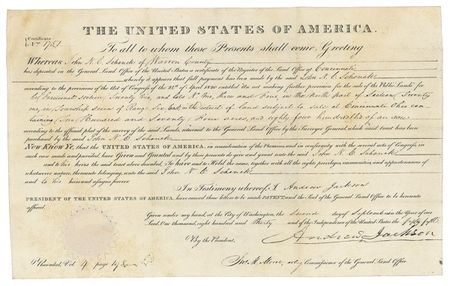 THE UNITED STATES OF AMERICA.
Certificate
No. 1751
To all to whom these Presents shall come, Greeting
Whereas John N. C. Schenck of Warren County
has deposited in the General Land Office of the United States a certificate of the Register of the Land Office at Cincinnati
whereby it appears that full payment has been made by the said John N. C. Schenck
according to the provisions of the Act of Congress of the 24th of April 1820 entitled An act making further provision for the sale of the Public Lands for
in Township seven of Range Six East, in the district of Lands subject to sale at Cincinnati Ohio con
taining One Hundred and Seventy acres, and eighty four hundredths of an acre
according to the official plat of the survey of the said Lands returned to the General Land Office by the Surveyor General, which said tract has been
purchased by the said John N. C. Schenck
Now Know Ye, that the UNITED STATES OF AMERICA, in consideration of the Premises and in conformity with the several acts of Congress in
such case made and provided, have Given and Granted and by these presents do give and grant unto the said John N. C. Schenck
and to his heirs the said tract above described: To have and to Hold the same, together with all the rights, privileges, immunities, and appurtenances of
whatsoever nature, thereunto belonging, unto the said John N. C. Schenck
and to his heirs and assigns forever.
In Testimony whereof I, Andrew Jackson
PRESIDENT OF THE UNITED STATES OF AMERICA, have caused these letters to be made PATENT and the Seal of the General Land Office to be hereunto
affixed.
Given under my hand, at the City of Washington, the second day of September in the Year of our
Lord, One thousand, eight hundred and thirty and of the Independence of the United States the fifty fifth
By the President,
Andrew Jackson
Commissioner of the General Land Office
Recorded, Vol. page